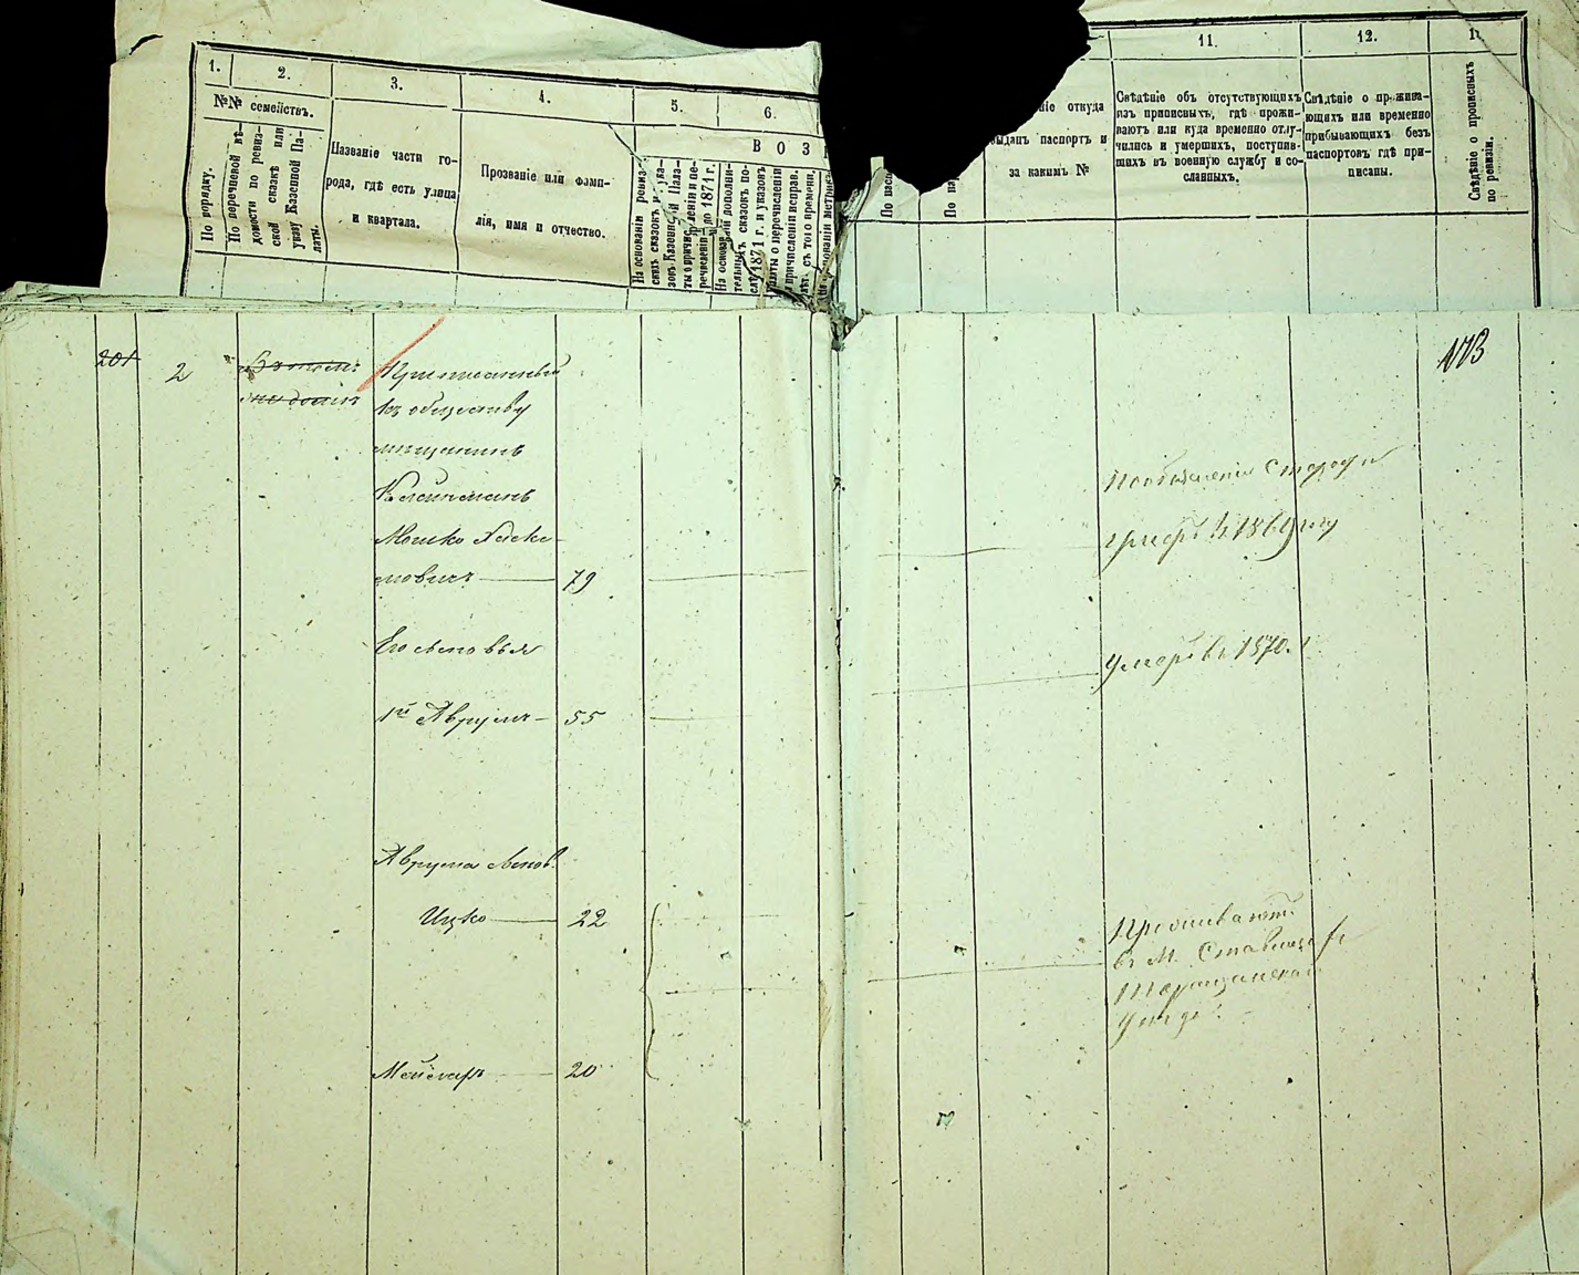 1.
2.
3.
4.
5.
6.
№№ семействъ.
В О З
По порядку.
По перечневой вѣ-
домости по ревиз-
ской сказкѣ или
указу Казенной Па-
латы.
Названіе части го-
рода, гдѣ есть улица
и квартала.
Прозваніе или фами-
лія, имя и отчество.
На основаніи ревиз-
скихъ сказокъ и ука-
зовъ Казенной Пала-
ты о причисленіи и пе-
речисленіи до 1871 г.
тельныхъ сказокъ по-
слѣ 1871 г. и указовъ
о перечисленіи
причисленіи исправ.
съ того времени
метрик
11.
12.
откуда
выданъ паспортъ и
за какимъ №
Свѣдѣніе объ отсутствующихъ
изъ приписныхъ, гдѣ прожи-
ваютъ или куда временно отлу-
чились и умершихъ, поступив-
шихъ въ военную службу и со-
сланныхъ.
Свѣдѣніе о прожива-
ющихъ или временно
прибывающихъ безъ
паспортовъ гдѣ при-
писаны.
Свѣдѣніе о прописныхъ
по ревизіи.
201
2
Приписанный
къ обществу
мѣщанинъ
Клейнманъ
Мошко Хаске-
левичъ 79
умеръ въ 1869 году
Его сыновья
1й Аврумъ 55
умеръ въ 1870 г.
Аврума сынов.
Ицко 22
Проживаютъ
въ М. Ставищахъ
Таращанскаго
уѣзда.
20
173